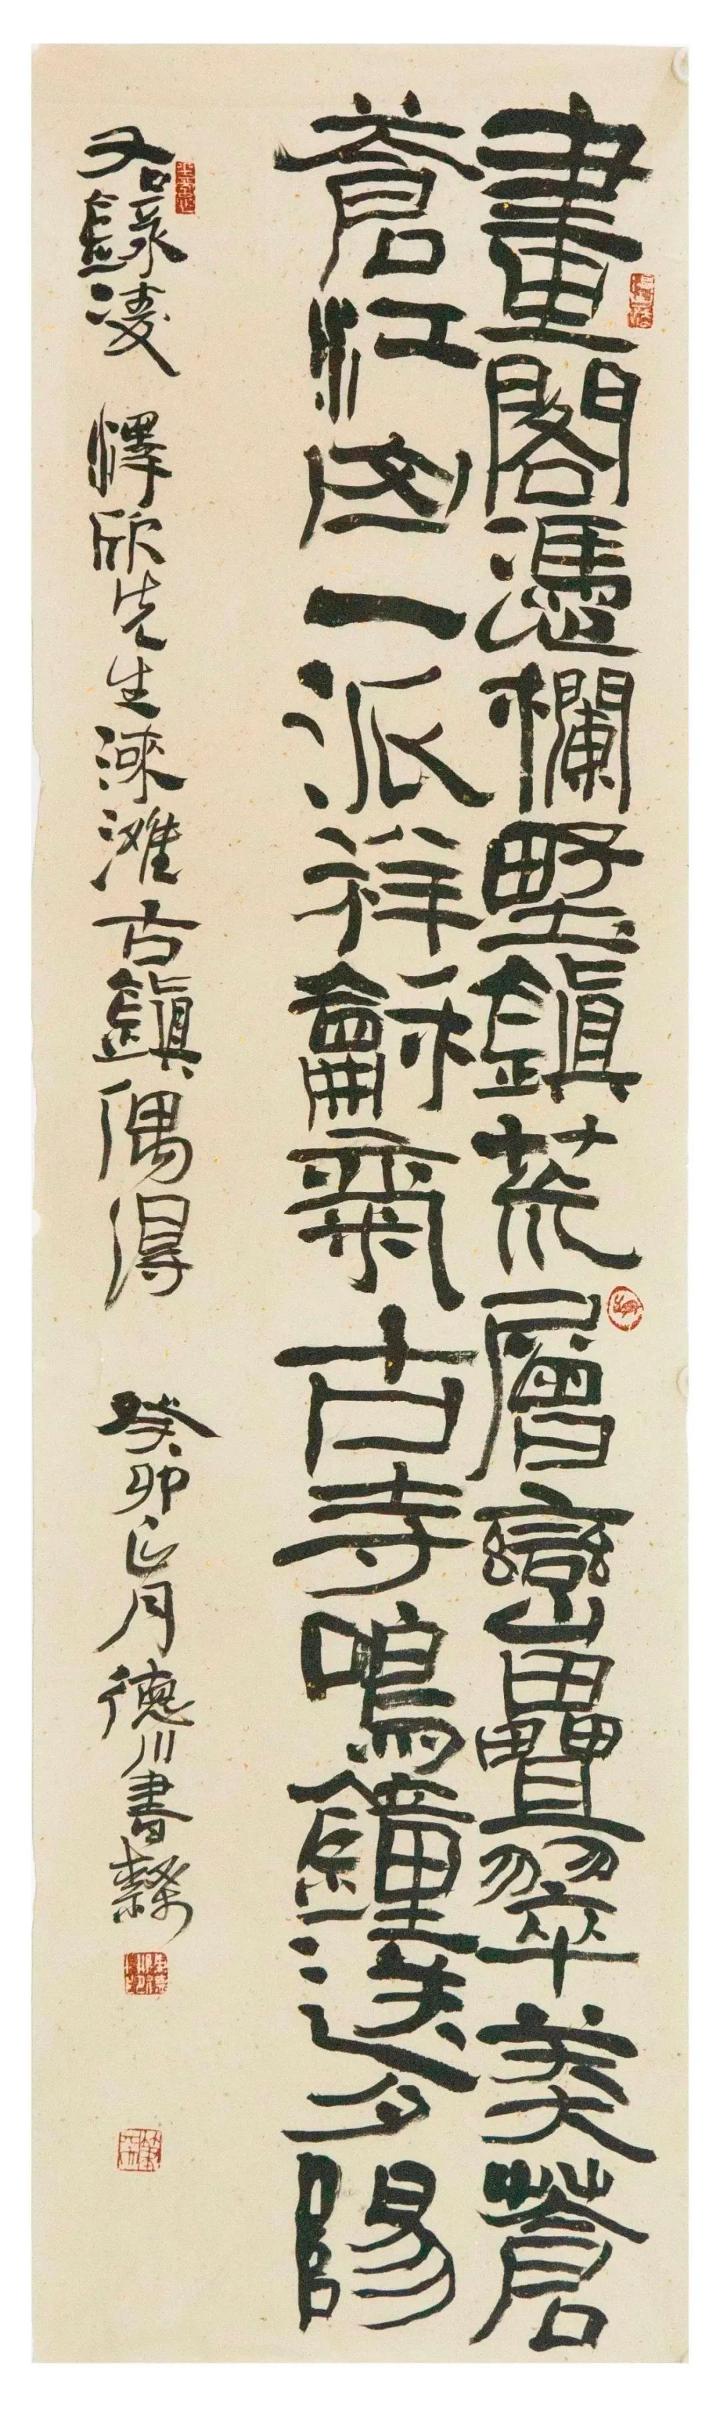 畫閣憑欄野鎮荒層巒疊翠美蒼
蒼江一派祥龢氣古寺鳴鐘送夕陽
右錄凌 懌欣先生淶滩古鎮偶得 癸卯正月德川書